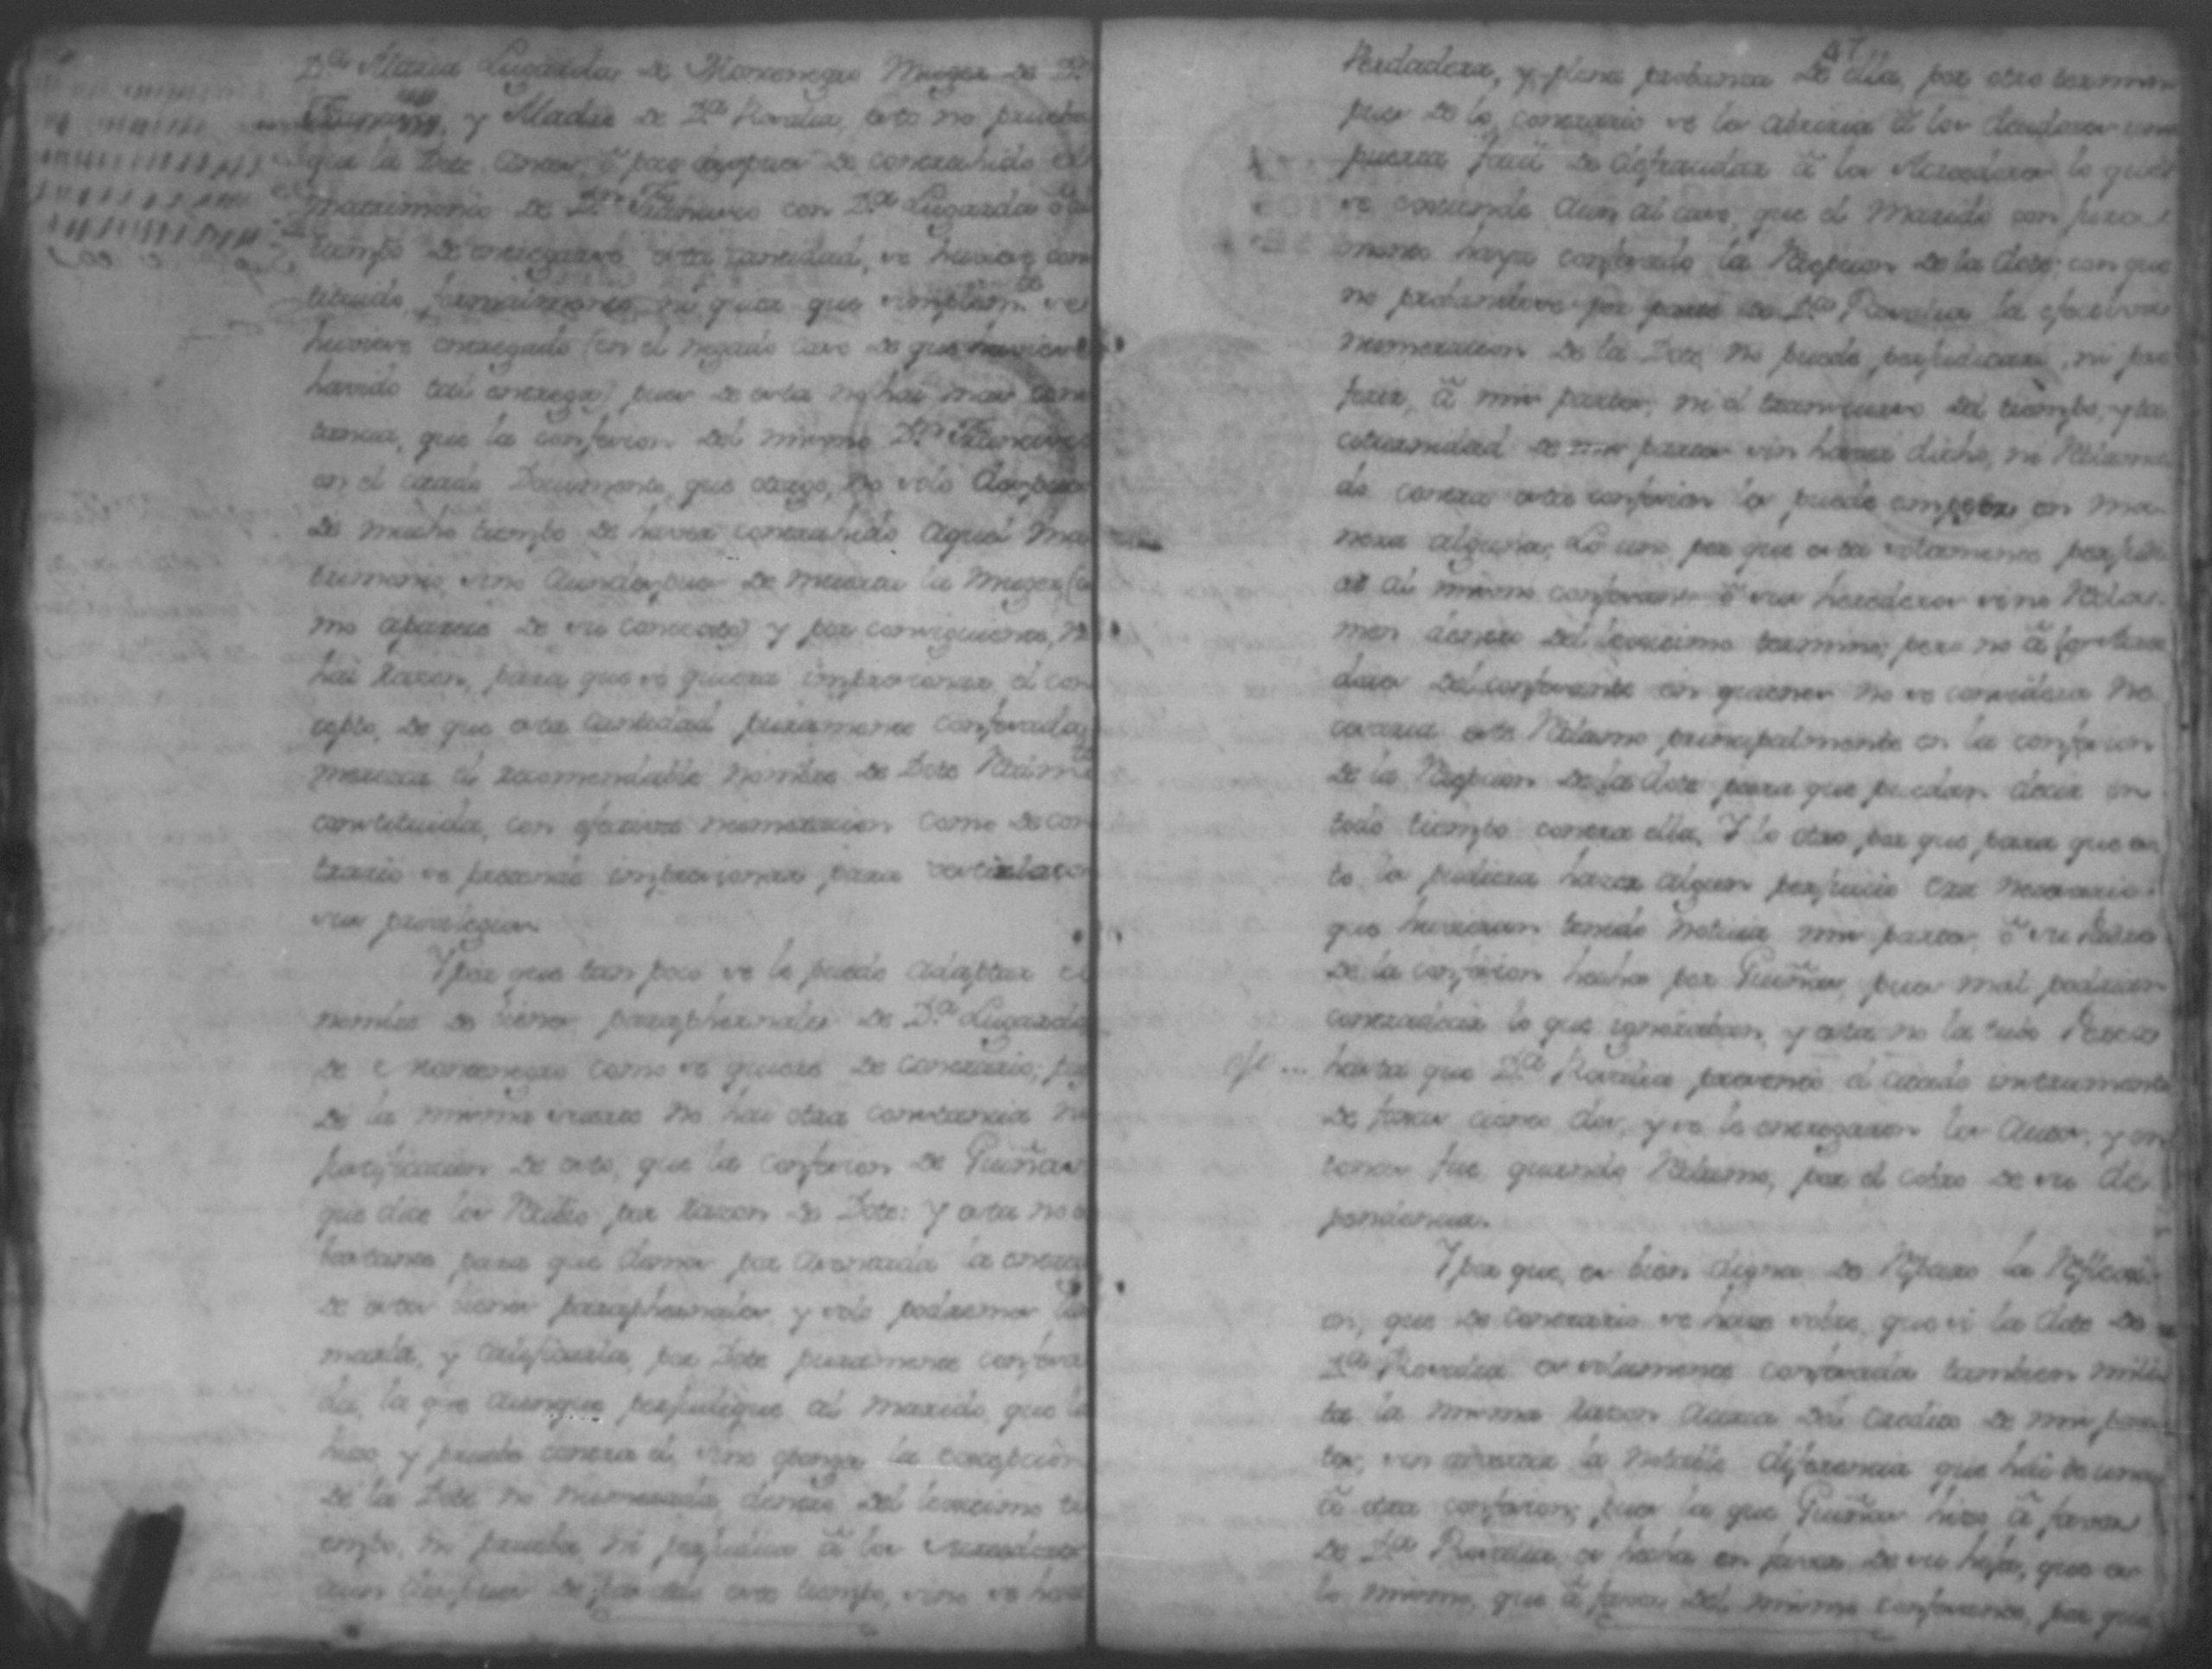 D.ª Maria Lugarda de Montenegro Muger de D.n
Francisco, y Madre de D.ª Rosalia, esto no prueba
que la Dote antes, ô poco despues de contrahido el
matrimonio de D.n Francisco con D.ª Lugarda ô al
tiempo de entregarse esta cantidad, se huviese cons
tituido formalmente ni que simplem.te se
huviese entregado (en el negado caso de que huviese
havido tal entrega) pues de esta no hai mas cons
tancia, que la confesion del mismo D.n Francisco
en el citado Documento, que otorgo, no solo despues
de mucho tiempo de haver contrahido aquel ma
trimonio, sino aun despues de muerta la Muger (co
mo aparece de su contexto) y por consiguiente, no
hai razon, para que se quiera impresionar el con
cepto, de que esta cantidad puramente confesada
meresca el recomendable nombre de Dote
constituida, con efectiva numeracion como de con
trario se pretende impresionar para
sus privilegios.
Y por que tan poco se le puede adaptar el
nombre de bienes paraphernales de D.ª Lugarda
de Montenegro como se quiere de contrario; por
de la misma suerte no hai otra constancia ni
justificacion de esto, que la confesion de Guiñas
que dice los Recibio por razon de Dote: y esta no es
bastante para que demos por asentada la entrega
de estos bienes paraphernales, y solo podremos lla
marla, y calificarla, por Dote puramente confesa
da, la que aunque perjudique al marido, que la
hizo y pruebe contra el, sino oponga la excepcion
de la Dote no numerada, dentro del lexitimo ti
empo, no prueba ni perjudica â los Acreedores
aun despues de pasado este tiempo, sino se hace
57
Verdadera, y plena probanza de ella, por otro termino
pues de lo contrario se les abriria â los deudores una
puerta facil de defraudar â los Acreedores lo que
se extiende aun al caso, que el Marido con jura
mento haya confesado la Repcion de la dote; con que
no probandose por parte de D.ª Rosalia la efectiva
numeracion de la Dote no puede perjudicar, ni pre
ferir, â mis partes, ni el transcurso del tiempo, y ta
citurnidad de mis partes sin haver dicho, ni Reclama
do contra esta confesion les puede empecer en ma
nera alguna; Lo uno, por que esta solamente perjudi
ca al mismo confesante ô sus herederos sino Recla
man dentro del lexitimo termino; pero no â los Acree
dores del confesante en quienes no se considera ne
cesario este Reclamo principalmente en la confesion
de la Repcion de la dote para que puedan decir en
todo tiempo contra ella. Y lo otro por que para que es
to les pudiera hacer algun perjuicio era necesario
que huvieran tenido noticia mis partes, ô su Padre
de la confesion hecha por Guiñas, pues mal podrian
contradecir lo que ignoraban, y esta no la tubo
hasta que D.ª Rosalia presentó el citado instrumento
de foxas ciento dos, y se le entregaron los Autos, y en
tonces fue quando Reclamo, por el cobro de su de
pendencia.
Y por que, es bien digna de Reparo la Reflexi
on, que de contrario se hace sobre, que si la dote de
D.ª Rosalia es solamente confesada tambien mili
ta la misma razon acerca del Credito de mis par
tes, sin advertir la notable diferencia que hai de una
â otra confesion; pues la que Guiñas hizo â favor
de D.ª Rosalia es hecha en favor de su hija, que es
lo mismo, que â favor del mismo confesante, por que